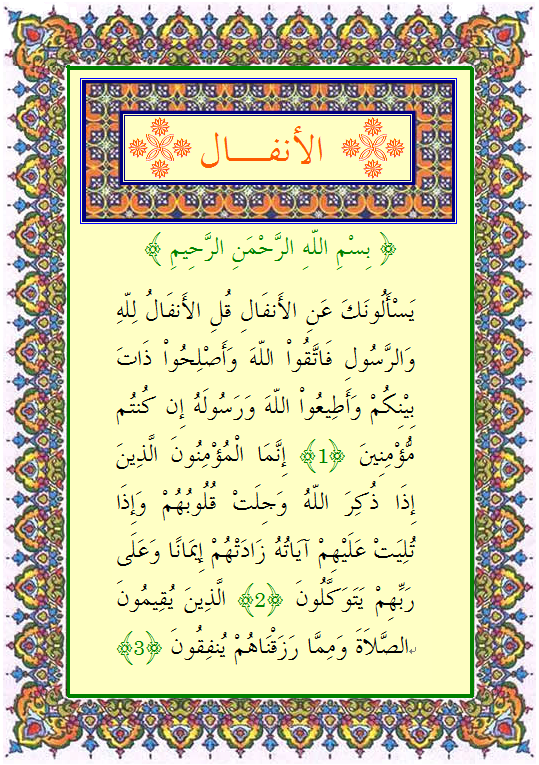 الأنفـــال
﴿ بِسْمِ اللّهِ الرَّحْمَنِ الرَّحِيمِ ﴾
يَسْأَلُونَكَ عَنِ الأَنفَالِ قُلِ الأَنفَالُ لِلّهِ
وَالرَّسُولِ فَاتَّقُواْ اللّهَ وَأَصْلِحُواْ ذَاتَ
بِيْنِكُمْ وَأَطِيعُواْ اللّهَ وَرَسُولَهُ إِن كُنتُم
مُّؤْمِنِينَ ﴿1﴾ إِنَّمَا الْمُؤْمِنُونَ الَّذِينَ
إِذَا ذُكِرَ اللّهُ وَجِلَتْ قُلُوبُهُمْ وَإِذَا
تُلِيَتْ عَلَيْهِمْ آيَاتُهُ زَادَتْهُمْ إِيمَانًا وَعَلَى
رَبِّهِمْ يَتَوَكَّلُونَ ﴿2﴾ الَّذِينَ يُقِيمُونَ
الصَّلاَةَ وَمِمَّا رَزَقْنَاهُمْ يُنفِقُونَ ﴿3﴾